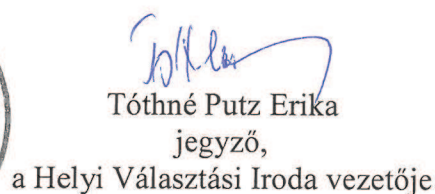 Tóthné Putz Erika
jegyző,
a Helyi Választási Iroda vezetője